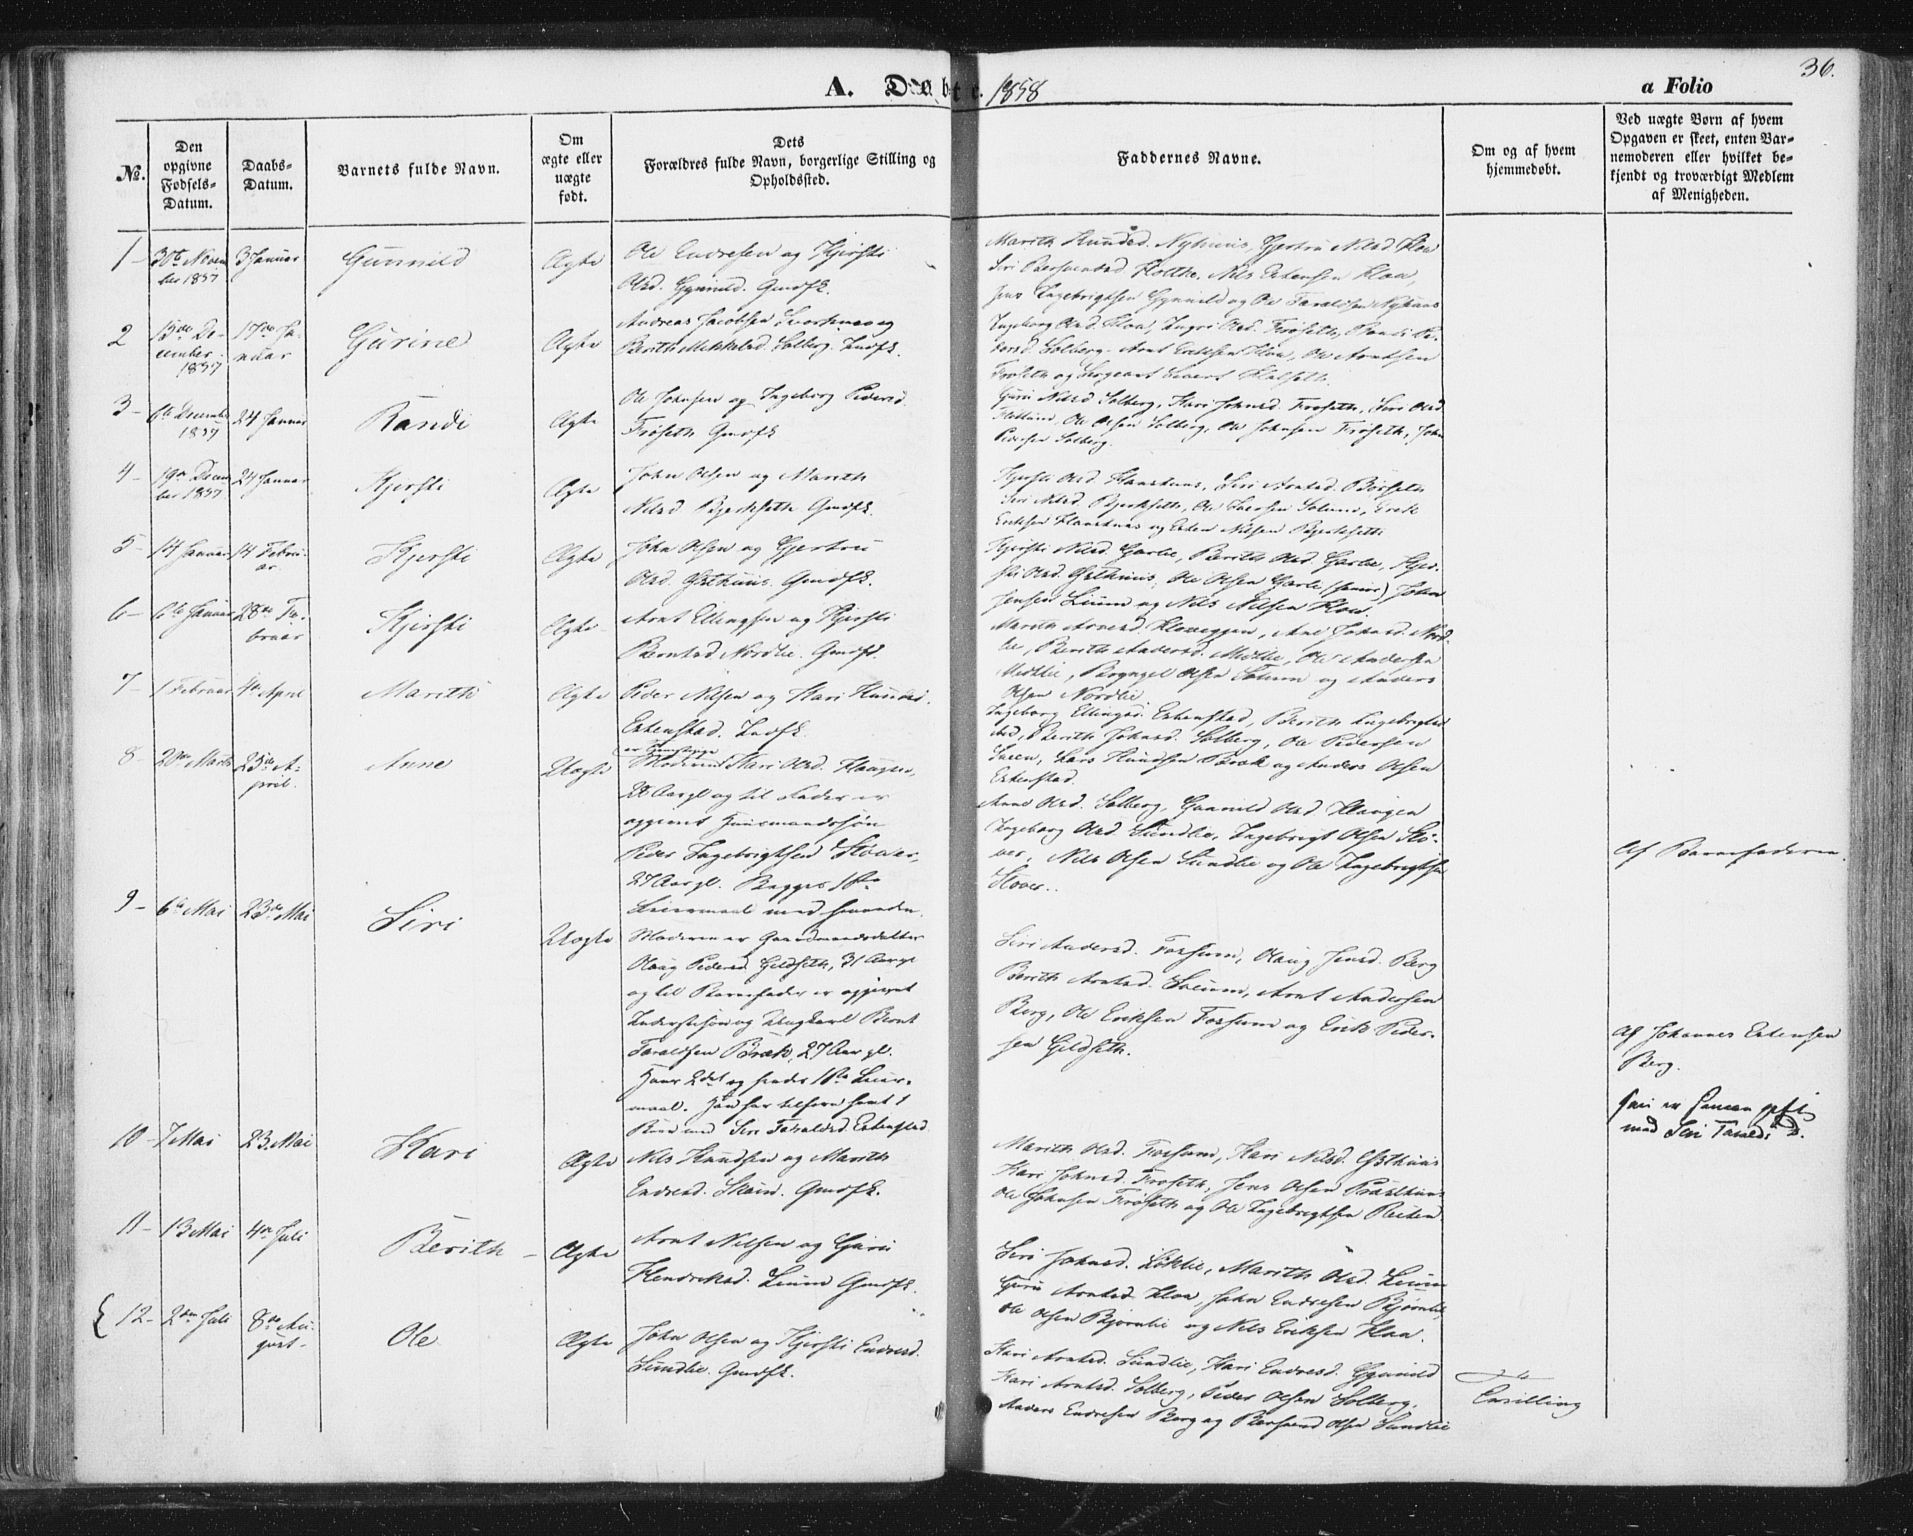 A. Døbte. 1858
a Folio
36.
No.
Den opgivne Fødsels-Datum.
Daabs-Datum.
Barnets fulde Navn.
Om ægte eller uægte født.
Dets Forældres fulde Navn, borgerlige Stilling og Opholdssted.
Faddernes Navne.
Om og af hvem hjemmedøbt.
Ved uægte Børn af hvem Opgaven er skeet, enten Barnemoderen eller hvilket bekjendt og troværdigt Medlem af Menigheden.
1 - 30te Novem
ber 1857
3 Januar
Gunnild
Ægte
Ole Endresen og Kjersti
Olsd. Gynnild. Gmdfk.
Siri Nils Estensen Kloa,
Jens Ingebrigtsen Gynnild og Ole Taraldsen Nyhuus
2
13de De-
cember
1857
17de Ja-
nuar
Gurine
Ægte
Andreas Jacobsen og
Berith Mikkelsd. Solberg. Indfk.
Ingeborg Olsd. Kloa, Ingri Olsd. Frøseth, Randi Pe-
dersd. Solberg. Arnt Eriksen Kloa, Ole Arntsen
Frøseth og Sergeant Sivert
3 -
6te December
1857
24 Januar
Randi
Ægte
Ole Johnsen og Ingeborg Pedersd.
Frøseth Gmdfk
Guru Nilsd Solberg, Kari Johnsd. Frøseth, Siri Olsd.
Ole Olsen Solberg, Ole Johnsen Frøseth, John
Pedersen Solberg.
4 -
19de Decem
ber 1857
24 Januar
Kjersti
Ægte
John Olsen og Marith
Nilsd Gmdfk.
Kjersti Olsd. Siri Arntsd.
Siri Nilsd. Ole
Eriksen og Esten Nilsen
5 -
14 Januar
14 Febru-
ar.
Kjersti
Ægte
John Olsen og Gjertru
Olsd. Østhuus. Gmdfk.
Kjersti Nilsd. Garlie, Berith Olsd. Garlie, Kjer-
sti Olsd. Østhuus, Ole Olsen Garli (junior) John
Jensen Lium og Nils Nilsen Kloa.
6 -
6te Januar
28de Fe-
bruar
Kjersti
Ægte
Arnt Ellingsen og Kjersti
Berntsd. Nordlie. Gmdfk.
Marith Arntsd. Ane Johnsd. Nord-
lie, Berith Andersd. Midtlie, Ole Andersen
Midtlie, Olsen og Anders
Olsen Nordlie
7 -
1 Februar
4de April
Marith
Ægte
Peder Nilsen og Kari Knudsd.
Estenstad. Indfk.
Ingeborg Ellingsd. Estenstad, Berith Ingebrigtsd
Berith Johnsd. Solberg, Ole Pedersen
Lars Knudsen Bræk og Anders Olsen
Estenstad.
8 -
20de Marts
25de A-
pril.
Anne
Uægte
Moderen Kari Olsd. Haugen,
22 Aar gl og til Fader er
opgivet Huusmandssøn
Peder Ingebrigtsen Støver,
27 Aar gl. Begges 1ste
Leiermaal med hinanden.
Anne Olsd. Solberg, Gunnild Olsd Haugen
Ingeborg Olsd. Sundlie, Ingebrigt Olsen Stø-
ver, Nils Olsen Sundlie og Ole Ingebrigtsen
Støver.
Af Barnefaderen.
9 -
6te Mai
23de Mai
Siri
Uægte
Moderen er Gaardmandsdatter
Olaug Pedersd. Gildseth, 31 Aar gl
og til Barnefader er opgivet
Inderstsøn og Ungkarl Bernt
Taraldsen Bræk, 27 Aar gl.
Hans 2det og hendes 1ste Leier-
maal. Han har tilforn havt 1
Barn med Siri Taraldsd. Estenstad
Siri Andersd. Forsum, Olaug Jensd. Berg
Berith Arntsd. Arnt Andersen
Berg, Ole Eriksen Forsum og Erik Peder-
sen Gildseth.
Af Johannes Estensen
Berg.
med Siri Taralds D.
10 -
7 Mai
23 Mai
Kari
Ægte
Nils Knudsen og Marith
Endresd. Skoin. Gmdfk.
Marith Olsd. Forsum, Kari Nilsd. Østhuus
Kari Johnsd. Frøseth, Jens Olsen Præsthuus
Ole Johnsen Frøseth og Ole Ingebrigtsen Reiten
11 -
13 Mai
4de Juli
Berith
Ægte
Arnt Nilsen og Guru
Hendriksd. Lium Gmdfk.
Siri Johnsd. Løklie, Marith Olsd. Lium
Guru Arntsd. Kloa, John Endresen Bjørnlie,
Ole Olsen Bjørnlie og Nils Eriksen Kloa.
12 -
2den Juli
8de Au-
gust.
Ole
Ægte
John Olsen og Kjersti Endresd.
Sundlie. Gmdfk.
Kari Arntsd. Sundlie, Kari Endresd. Gynnild
Kari Arntsd. Solberg, Peder Olsen Solberg,
Anders Endresen Berg og Olsen Sundlie